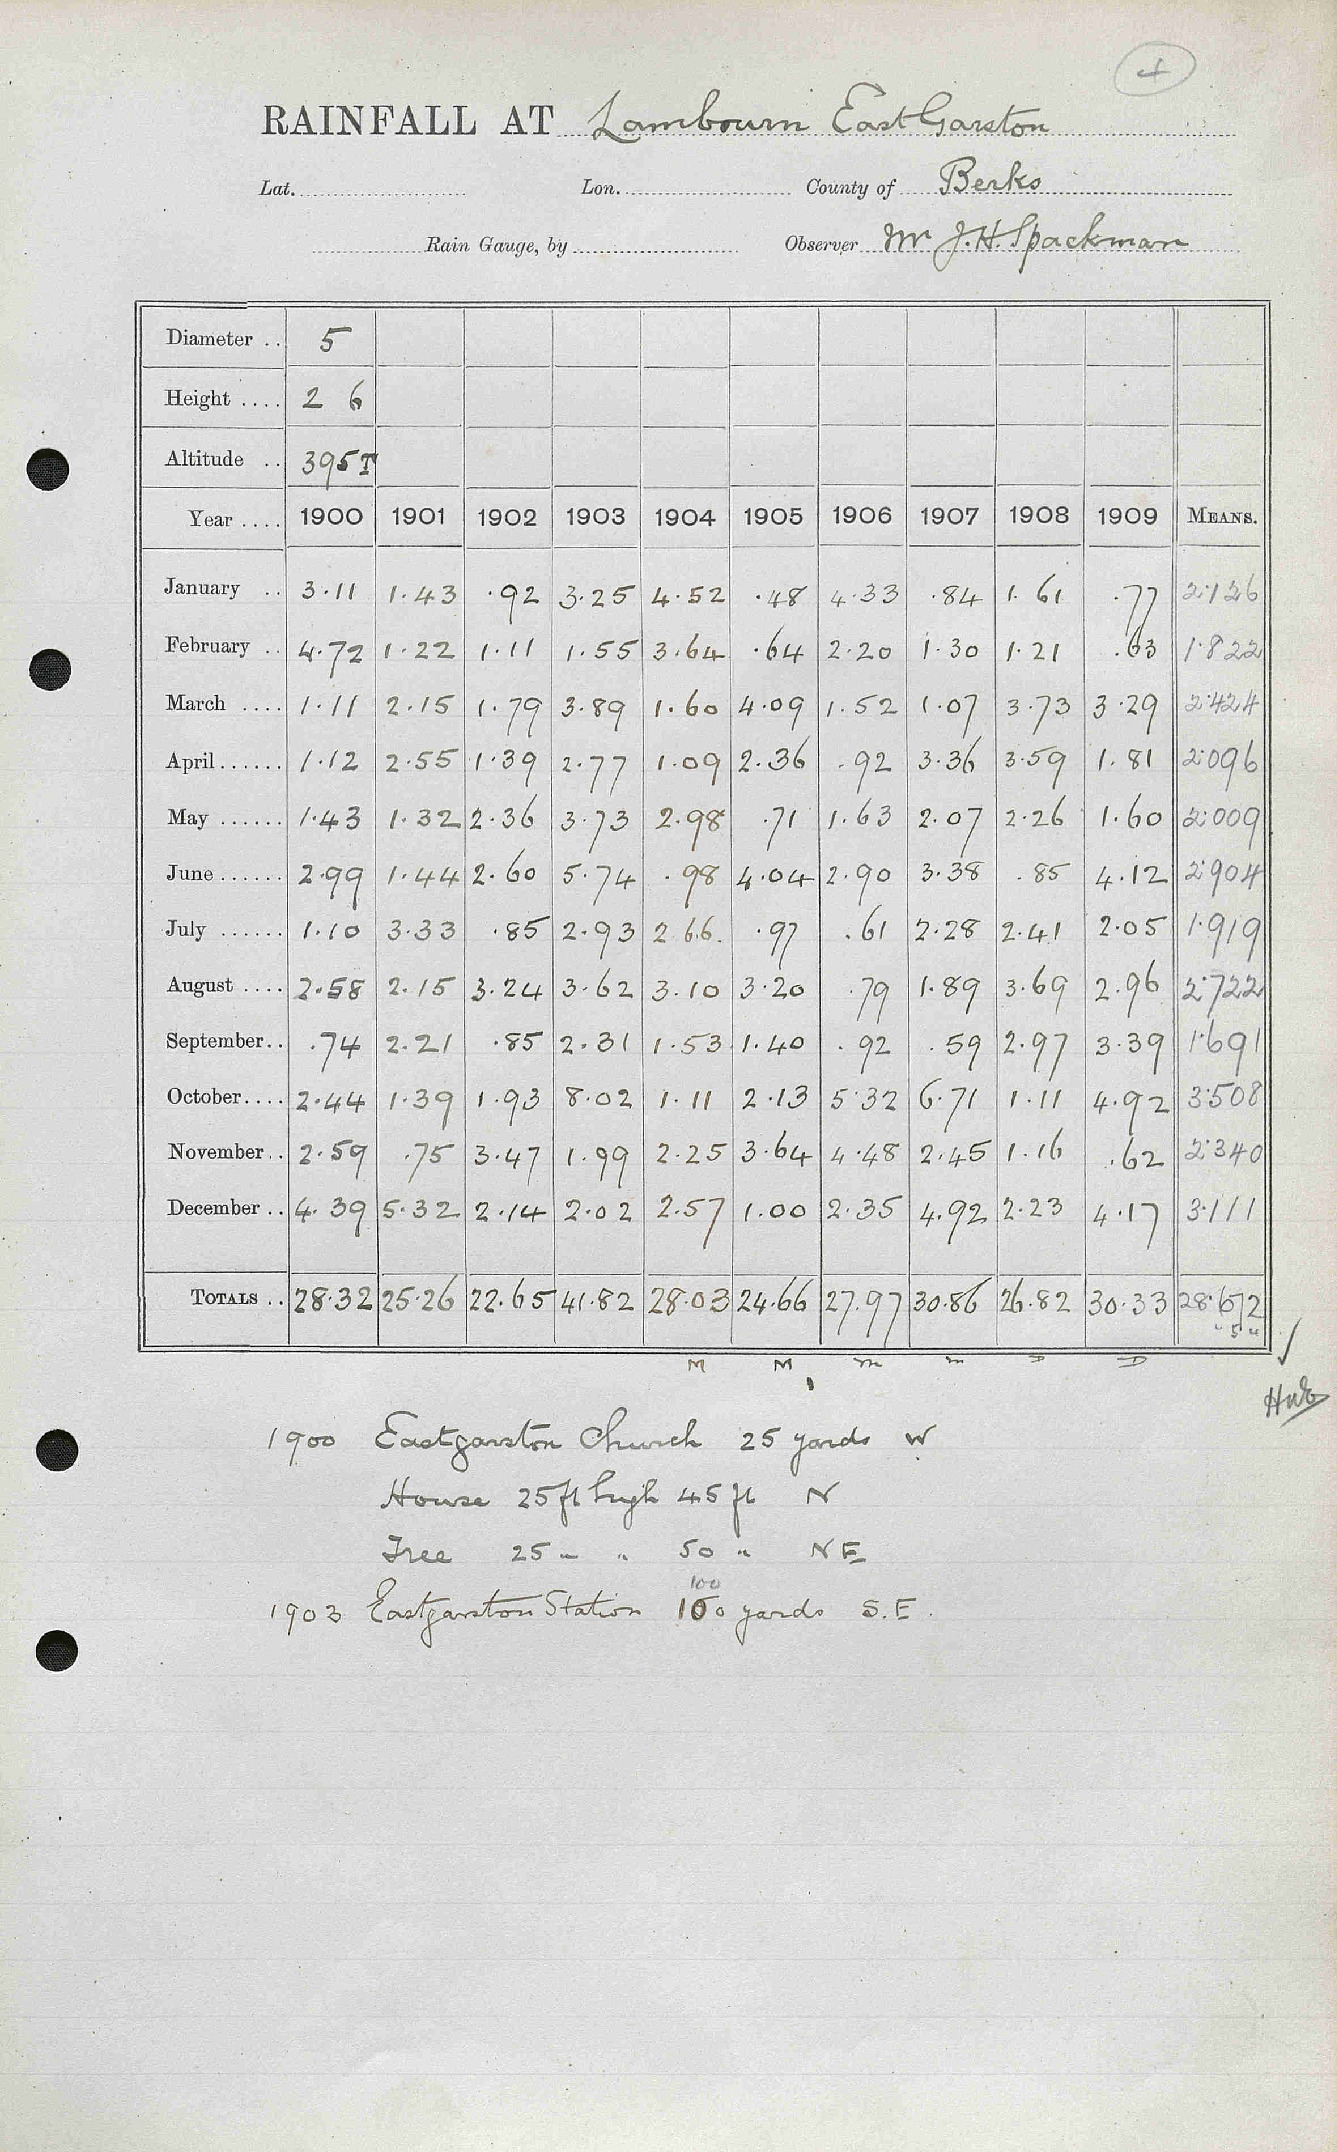 4
RAINFALL AT Lambourn East Garston
Lat. Lon. County of Berks
Rain Gauge, by Observer Mr J. H. Spackman
Diameter .. 5
Height .... 2 6
Altitude .. 395T
Year .... 1900 1901 1902 1903 1904 1905 1906 1907 1908 1909 MEANS.
January .. 3.11 1.43 .92 3.25 4.52 .48 4.33 .84 1.61 .77 2.126
February .. 4.72 1.22 1.11 1.55 3.64 .64 2.20 1.30 1.21 .63 1.822
March .... 1.11 2.15 1.79 3.89 1.60 4.09 1.52 1.07 3.73 3.29 2.424
April ...... 1.12 2.55 1.39 2.77 1.09 2.36 .92 3.36 3.59 1.81 2.096
May ...... 1.43 1.32 2.36 3.73 2.98 .71 1.63 2.07 2.26 1.60 2.009
June ...... 2.99 1.44 2.60 5.74 .98 4.04 2.90 3.38 .85 4.12 2.904
July ...... 1.10 3.33 .85 2.93 2.66 .97 .61 2.28 2.41 2.05 1.919
August .... 2.58 2.15 3.24 3.62 3.10 3.20 .79 1.89 3.69 2.96 2.722
September .. .74 2.21 .85 2.31 1.53 1.40 .92 .59 2.97 3.39 1.691
October .... 2.44 1.39 1.93 8.02 1.11 2.13 5.32 6.71 1.11 4.92 3.508
November .. 2.59 .75 3.47 1.99 2.25 3.64 4.48 2.45 1.16 .62 2.340
December .. 4.39 5.32 2.14 2.02 2.57 1.00 2.35 4.92 2.23 4.17 3.111
TOTALS .. 28.32 25.26 22.65 41.82 28.03 24.66 27.97 30.86 26.82 30.33 28.672
" 5 "
M M m m D D
1900 Eastgarston Church 25 yards W
House 25 ft high 45 ft N
Tree 25 " " 50 " NE
100
1903 Eastgarston Station 100 yards S.E.